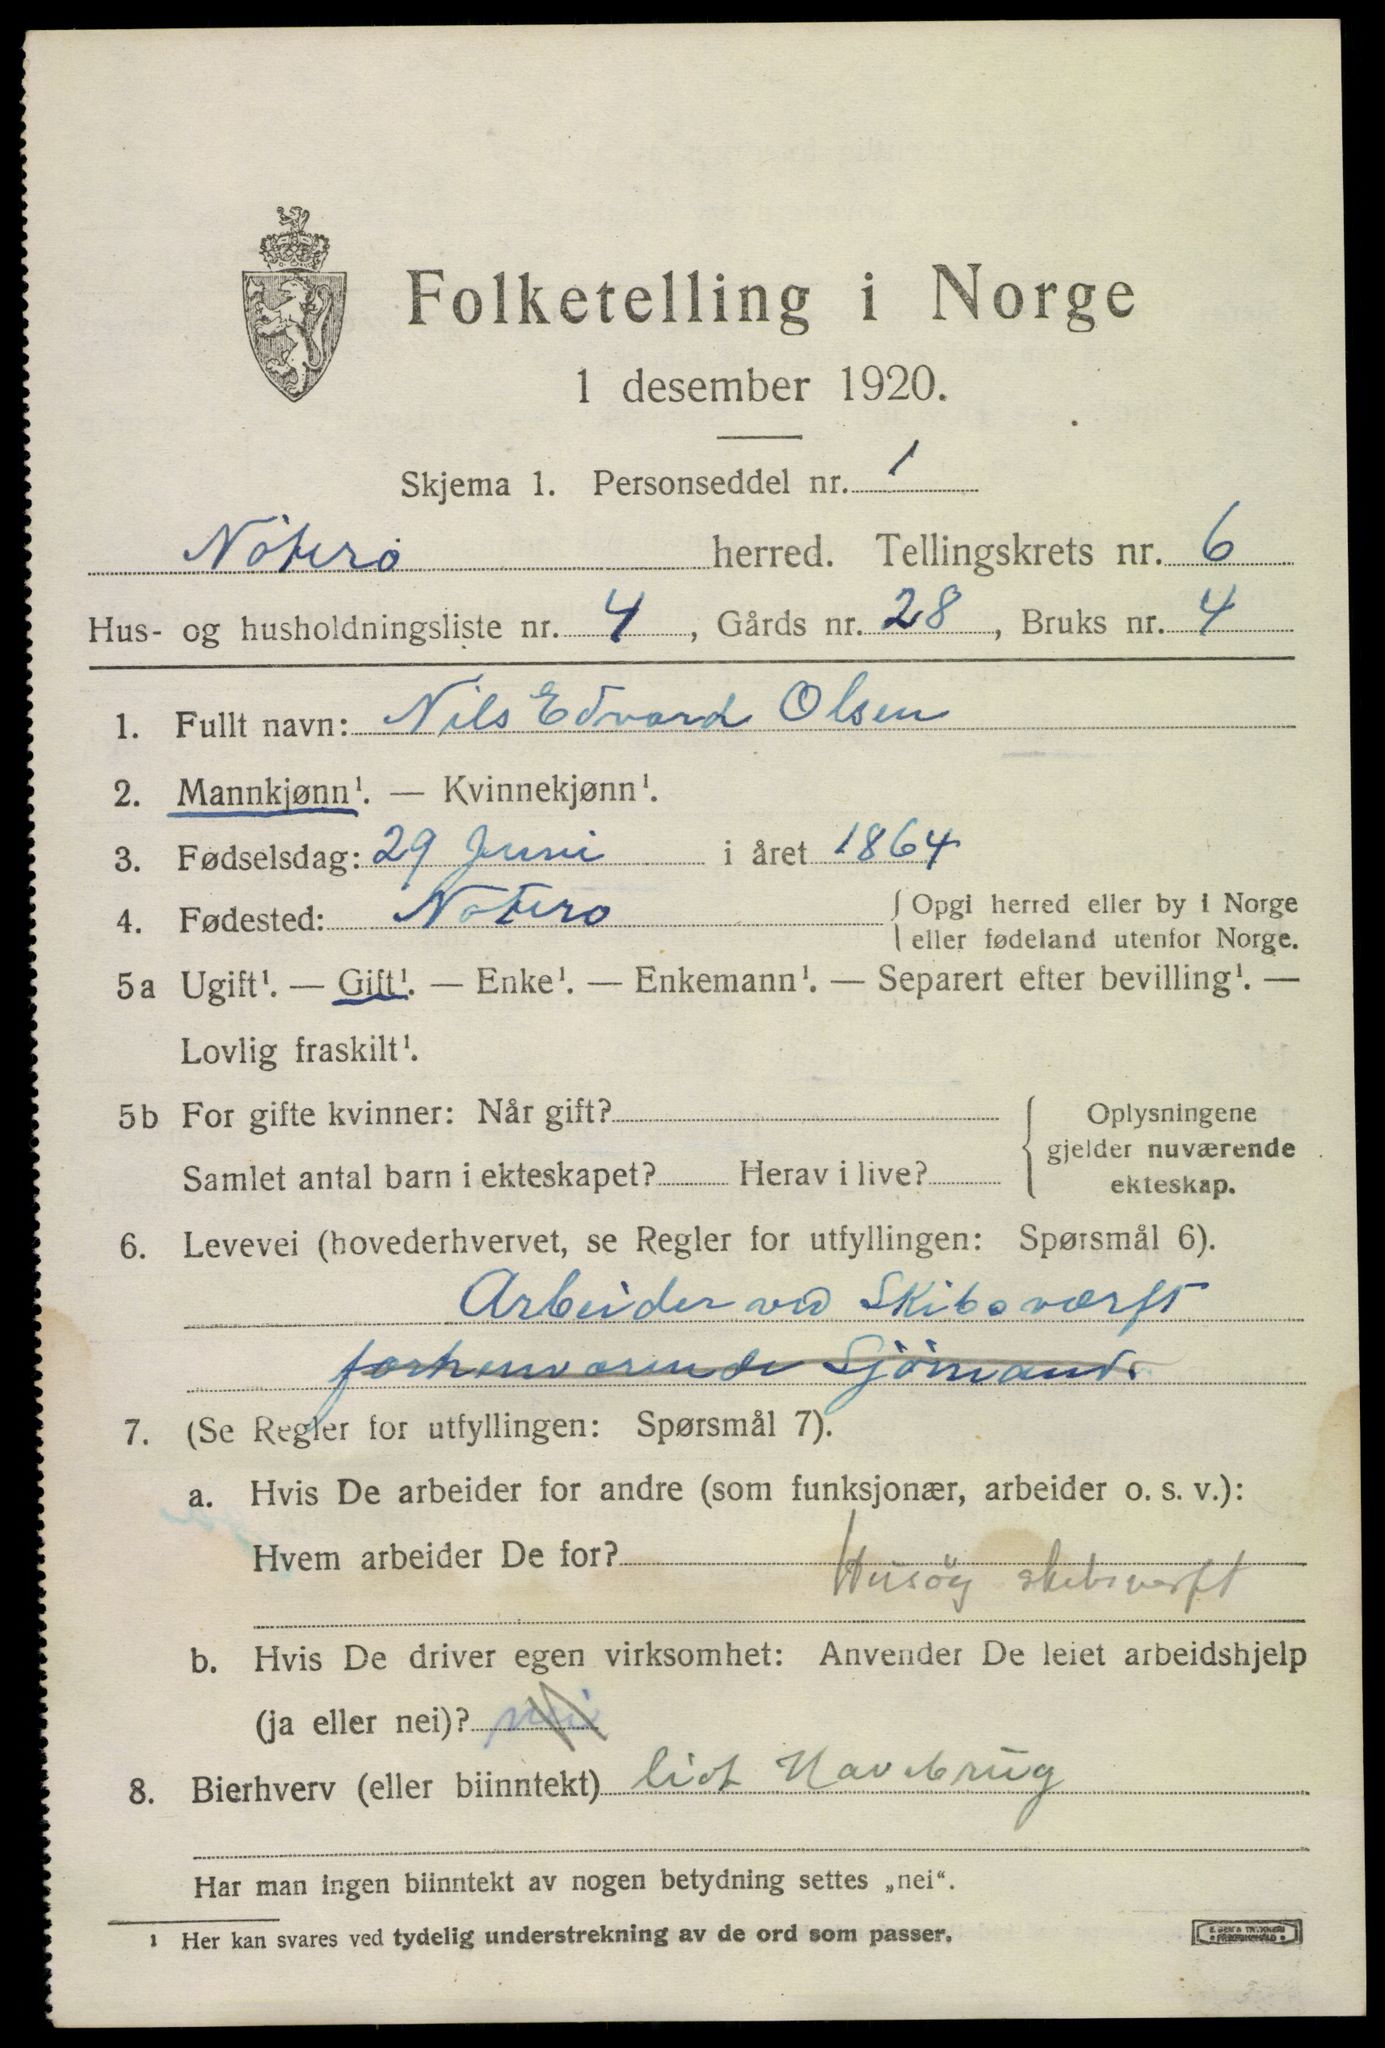 Folketelling i Norge
1 desember 1920.
Skjema 1. Personseddel nr. 1
Nøterø herred. Tellingskrets nr. 6
Hus- og husholdningsliste nr. 4, Gårds nr. 28, Bruks nr. 4
1. Fullt navn: Nils Edvard Olsen
2. Mannkjønn¹. — Kvinnekjønn¹.
3. Fødselsdag: 29 Juni i året 1864
4. Fødested: Nøterø { Opgi herred eller by i Norge
eller fødeland utenfor Norge.
5a Ugift¹. — Gift¹. — Enke¹. — Enkemann¹. — Separert efter bevilling¹. —
Lovlig fraskilt¹.
5b For gifte kvinner: Når gift?
Samlet antal barn i ekteskapet? Herav i live?
Oplysningene
gjelder nuværende
ekteskap.
6. Levevei (hovederhvervet, se Regler for utfyllingen: Spørsmål 6).
Arbeider ved Skibsværft
forhenværende Sjömand
7. (Se Regler for utfyllingen: Spørsmål 7).
a. Hvis De arbeider for andre (som funksjonær, arbeider o. s. v.):
Hvem arbeider De for?
Husöy skibsverft
b. Hvis De driver egen virksomhet: Anvender De leiet arbeidshjelp
(ja eller nei)? nei
8. Bierhverv (eller biinntekt) lidt Havebrug
Har man ingen biinntekt av nogen betydning settes „nei“.
¹ Her kan svares ved tydelig understrekning av de ord som passer.